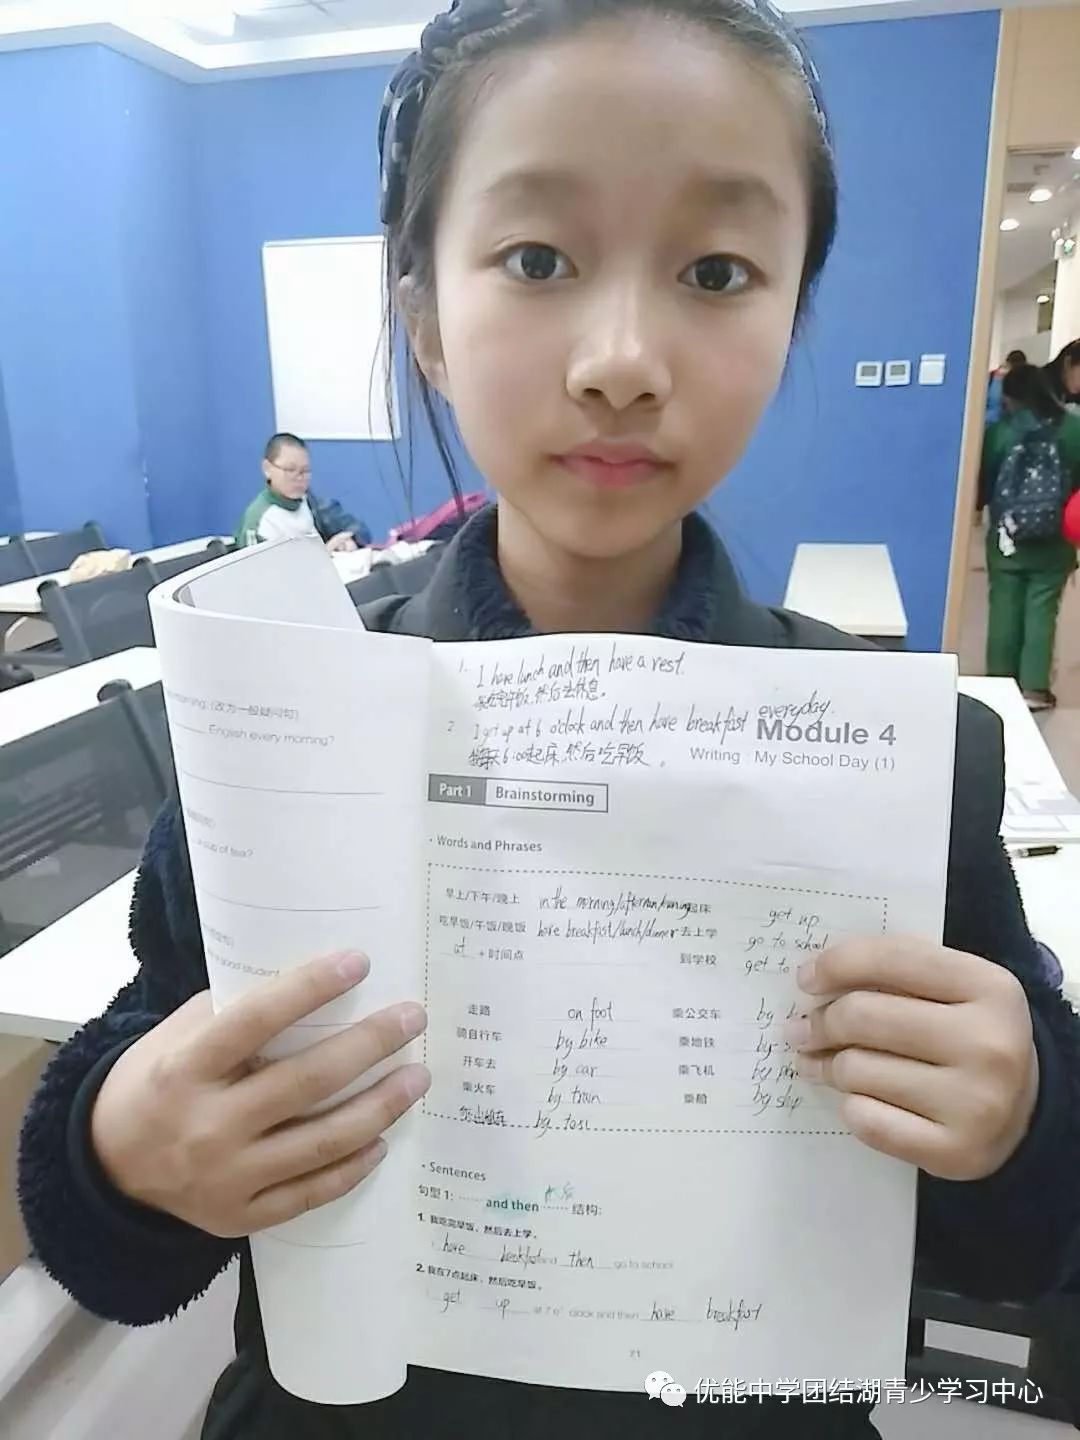 1. I have lunch and then have a rest.
然后去休息。
everyday.
2. I get up at 6 o'clock and then have breakfast
6:00起床,然后吃早饭。
Module 4
Writing : My School Day (1)
Part 1 Brainstorming
· Words and Phrases
早上/下午/晚上 in the morning/afternoon/evening 起床 get up
吃早饭/午饭/晚饭 have breakfast/lunch/dinner 去上学 go to school
at + 时间点 到学校 get to
走路 on foot 乘公交车 by
骑自行车 by bike 乘地铁 by
开车去 by car 乘飞机 by
乘火车 by train 乘船 by ship
by taxi
· Sentences
句型 1: ...... and then ...... 结构:
然后
1. 我吃完早饭,然后去上学。
I have breakfast and then go to school
2. 我在7点起床,然后吃早饭。
I get up at 7 o' clock and then have breakfast
21
(改为一般疑问句)
English every morning?
cup of tea?
good student
优能中学团结湖青少学习中心